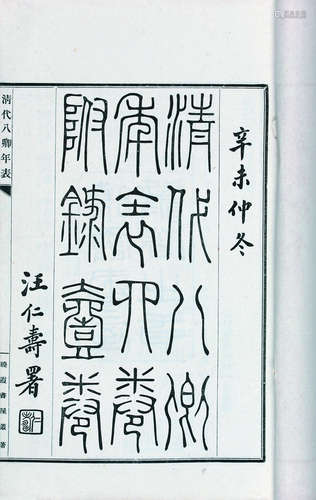 辛未仲冬
清代八卿
年表四卷
附錄壹卷
汪仁壽署
清代八卿年表